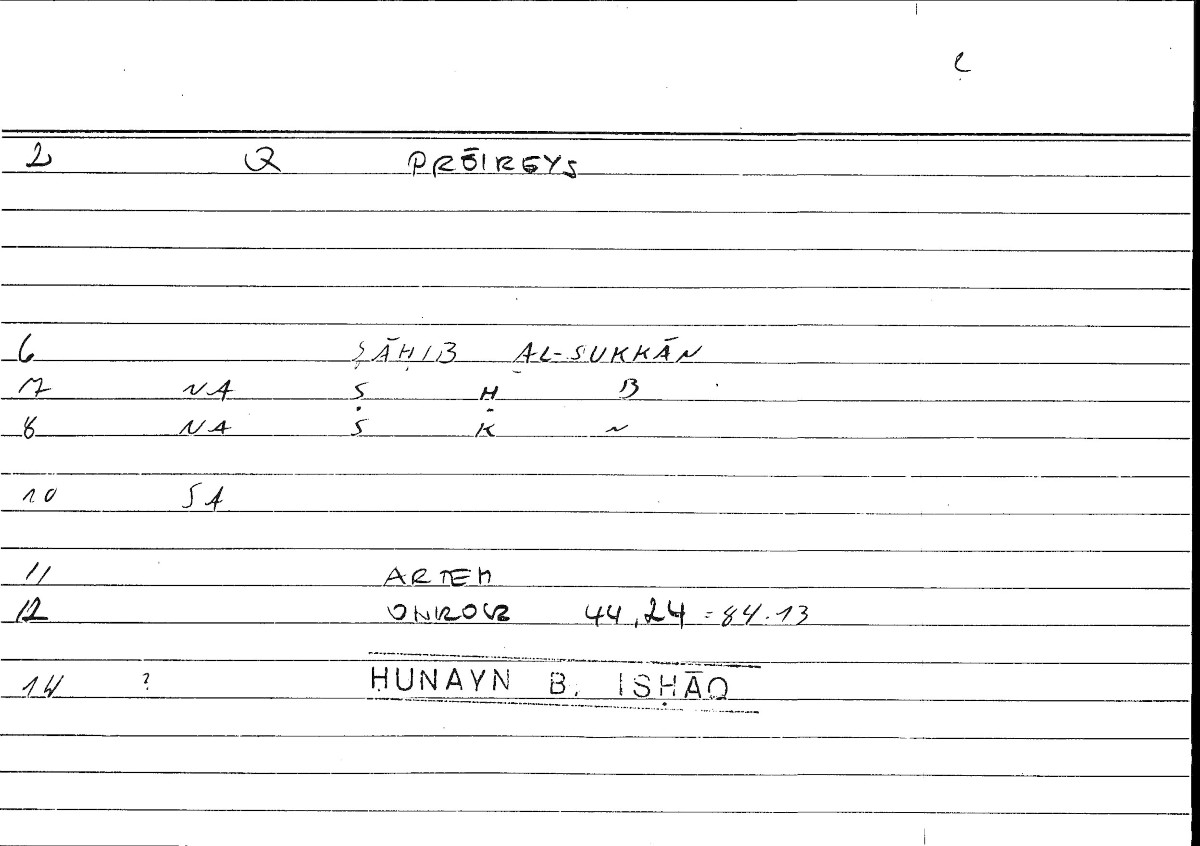 2 Q PRŌIREYS
6 ṢĀḤIB AL-SUKKĀN
17 NA Ṣ Ḥ B
8 NA S K N
10 SA
11 ARTEM
12 ONROCR 44,24 = 84.13
14 ? ḤUNAYN B. ISḤĀQ